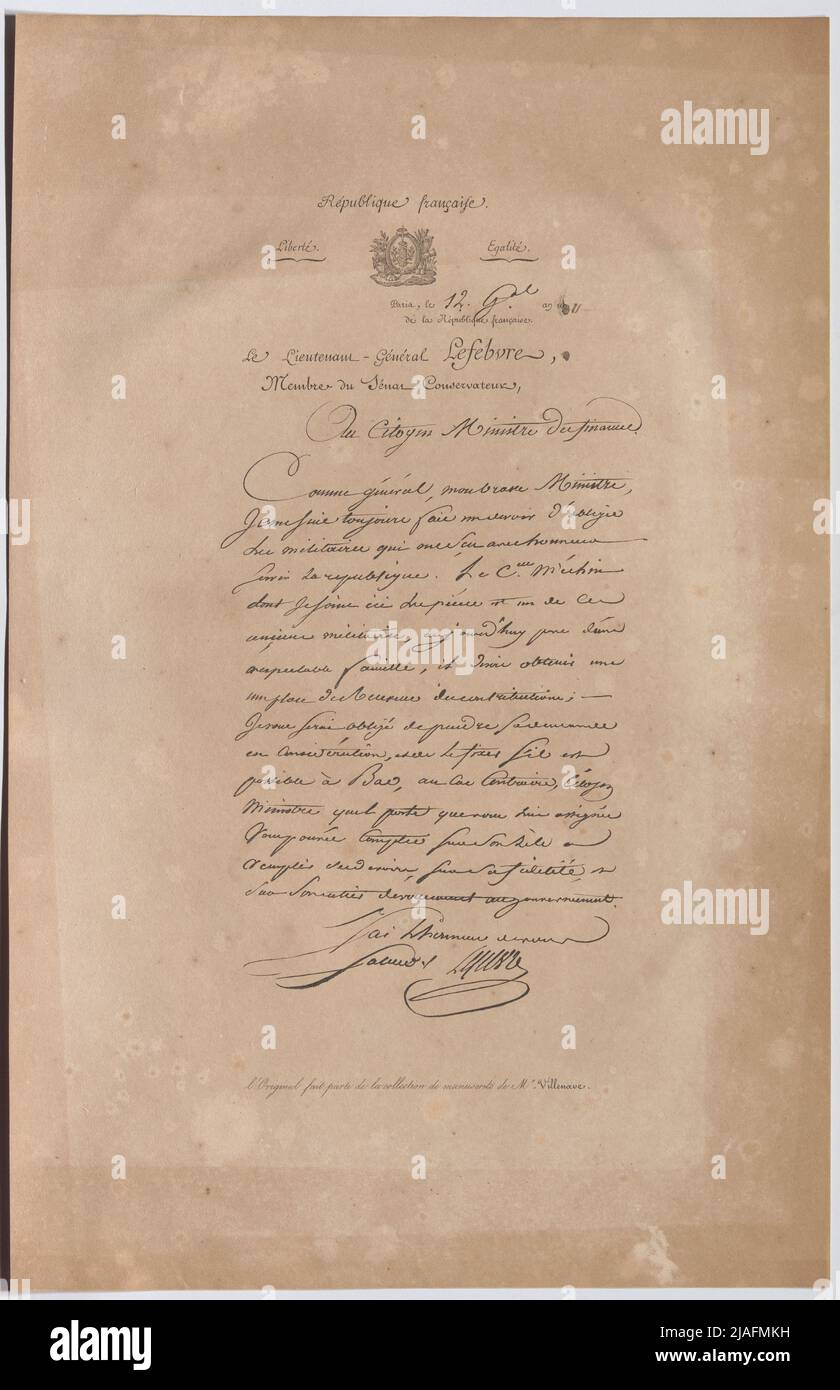 République française.
Liberté. Egalité.
Paris, le 12. G.al an 11
de la République française.
Le Lieutenant-Général Lefebvre,
Membre du Sénat Conservateur,
Au Citoyen Ministre des finance.
Comme général, mon brave Ministre,
Je me suis toujours fait un devoir d'obligé
des militaires qui ont
servir la republique. Le C.en Méchin
dont Je joins ici des pièces est un de ces
anciens militaires, aujourd'huy père d'une
respectable famille, et désire obtenir une
place de Receveur des contributions;
Je vous serai obligé de prendre sa demande
en Considération, et de le placer s'il est
possible à Bar, au Cas Contraire, Citoyen
Ministre quel poste que vous lui assignée
Vous pouvée Comptée sur son zèle a
remplir ses devoirs, sur sa fidélité et
sur son entier devouement au gouvernement.
J'ai l'honneur de vous
Saluer Lefebvre
l'Original fait partie de la collection de manuscrits de Mr. Villenave.
alamy
Image ID: 2JAFMKH
www.alamy.com